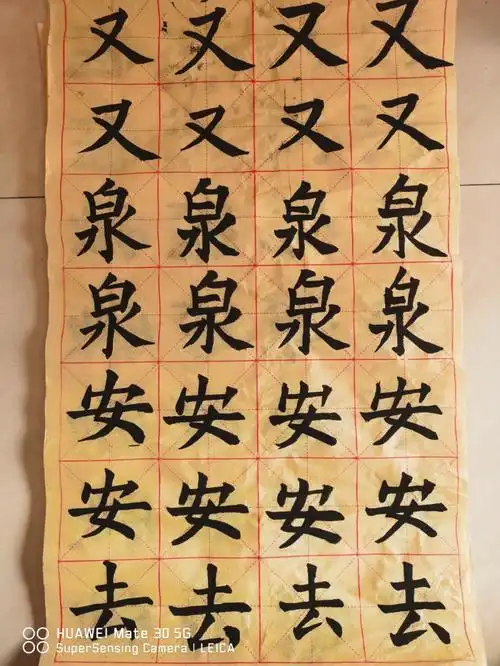 又又又又
又又又又
泉泉泉泉
泉泉泉泉
安安安安
安安安安
去去去去
HUAWEI Mate 30 5G
SuperSensing Camera | LEICA